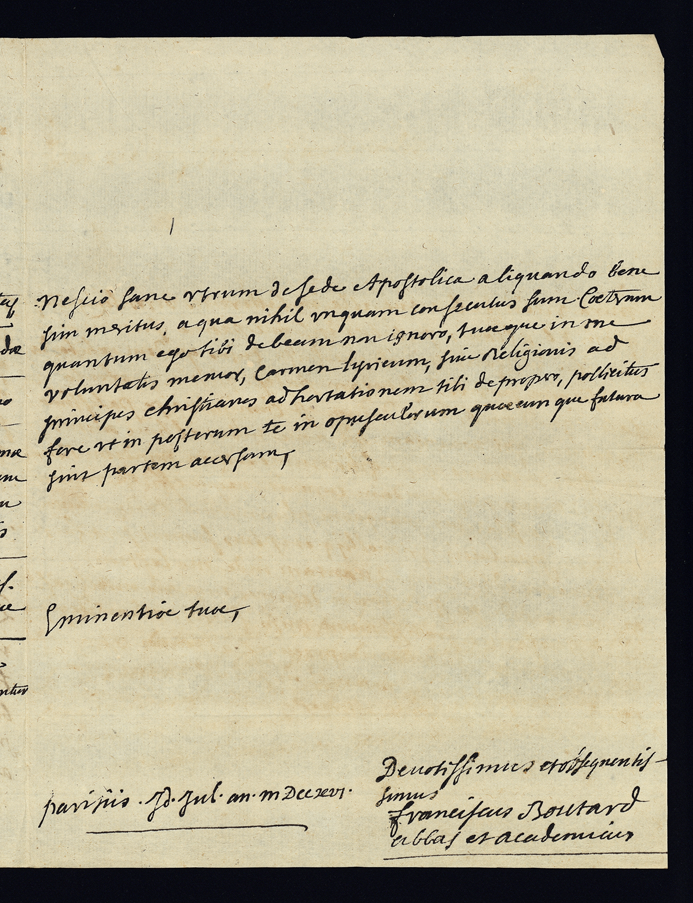 Nescio sane utrum de sede Apostolica aliquando bene
sim meritus, a qua nihil unquam consecutus sum Coeterum
quantum ego tibi debeam non ignoro, tuoeque in me
voluntatis memor, Carmen lyricum, sive Religionis ad
principes christianos adhortationem tibi depropro, pollicitus
fore ut in posterum te in opusculorum quoecunque futura
sint partem accersam,
Eminentioe tuoe,
Devotissimus et obsequentis-
simus
parisiis . Id. Jul. an. MDCCXVI.
franciscus Boutard
abbas et academicus